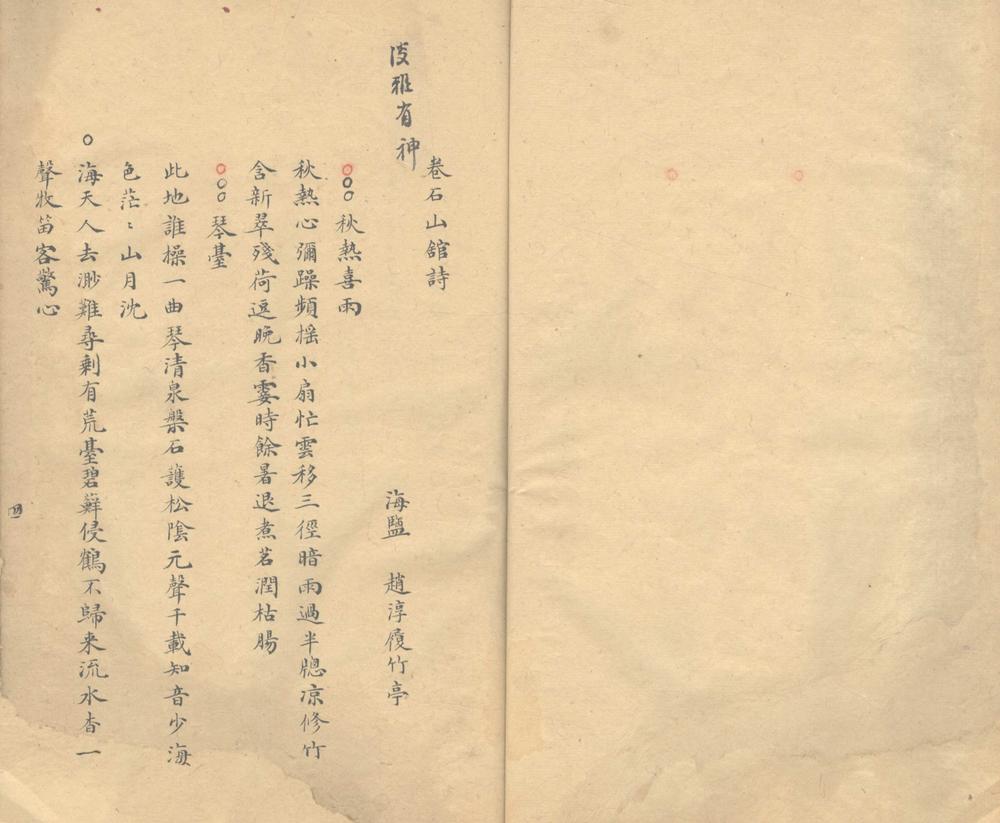 卷石山舘詩
雅有神
海鹽　趙淳履竹亭
秋熱喜雨
秋熱心彌躁頻搖小扇忙雲移三徑暗雨過半牕凉修竹
含新翠殘荷逗晚香霎時餘暑退煮茗潤枯腸
琴臺
此地誰操一曲琴清泉槃石護松陰元聲千載知音少海
色茫〻山月沈
海天人去渺難尋剩有荒臺碧蘚侵鶴不歸来流水杳一
聲牧笛客驚心